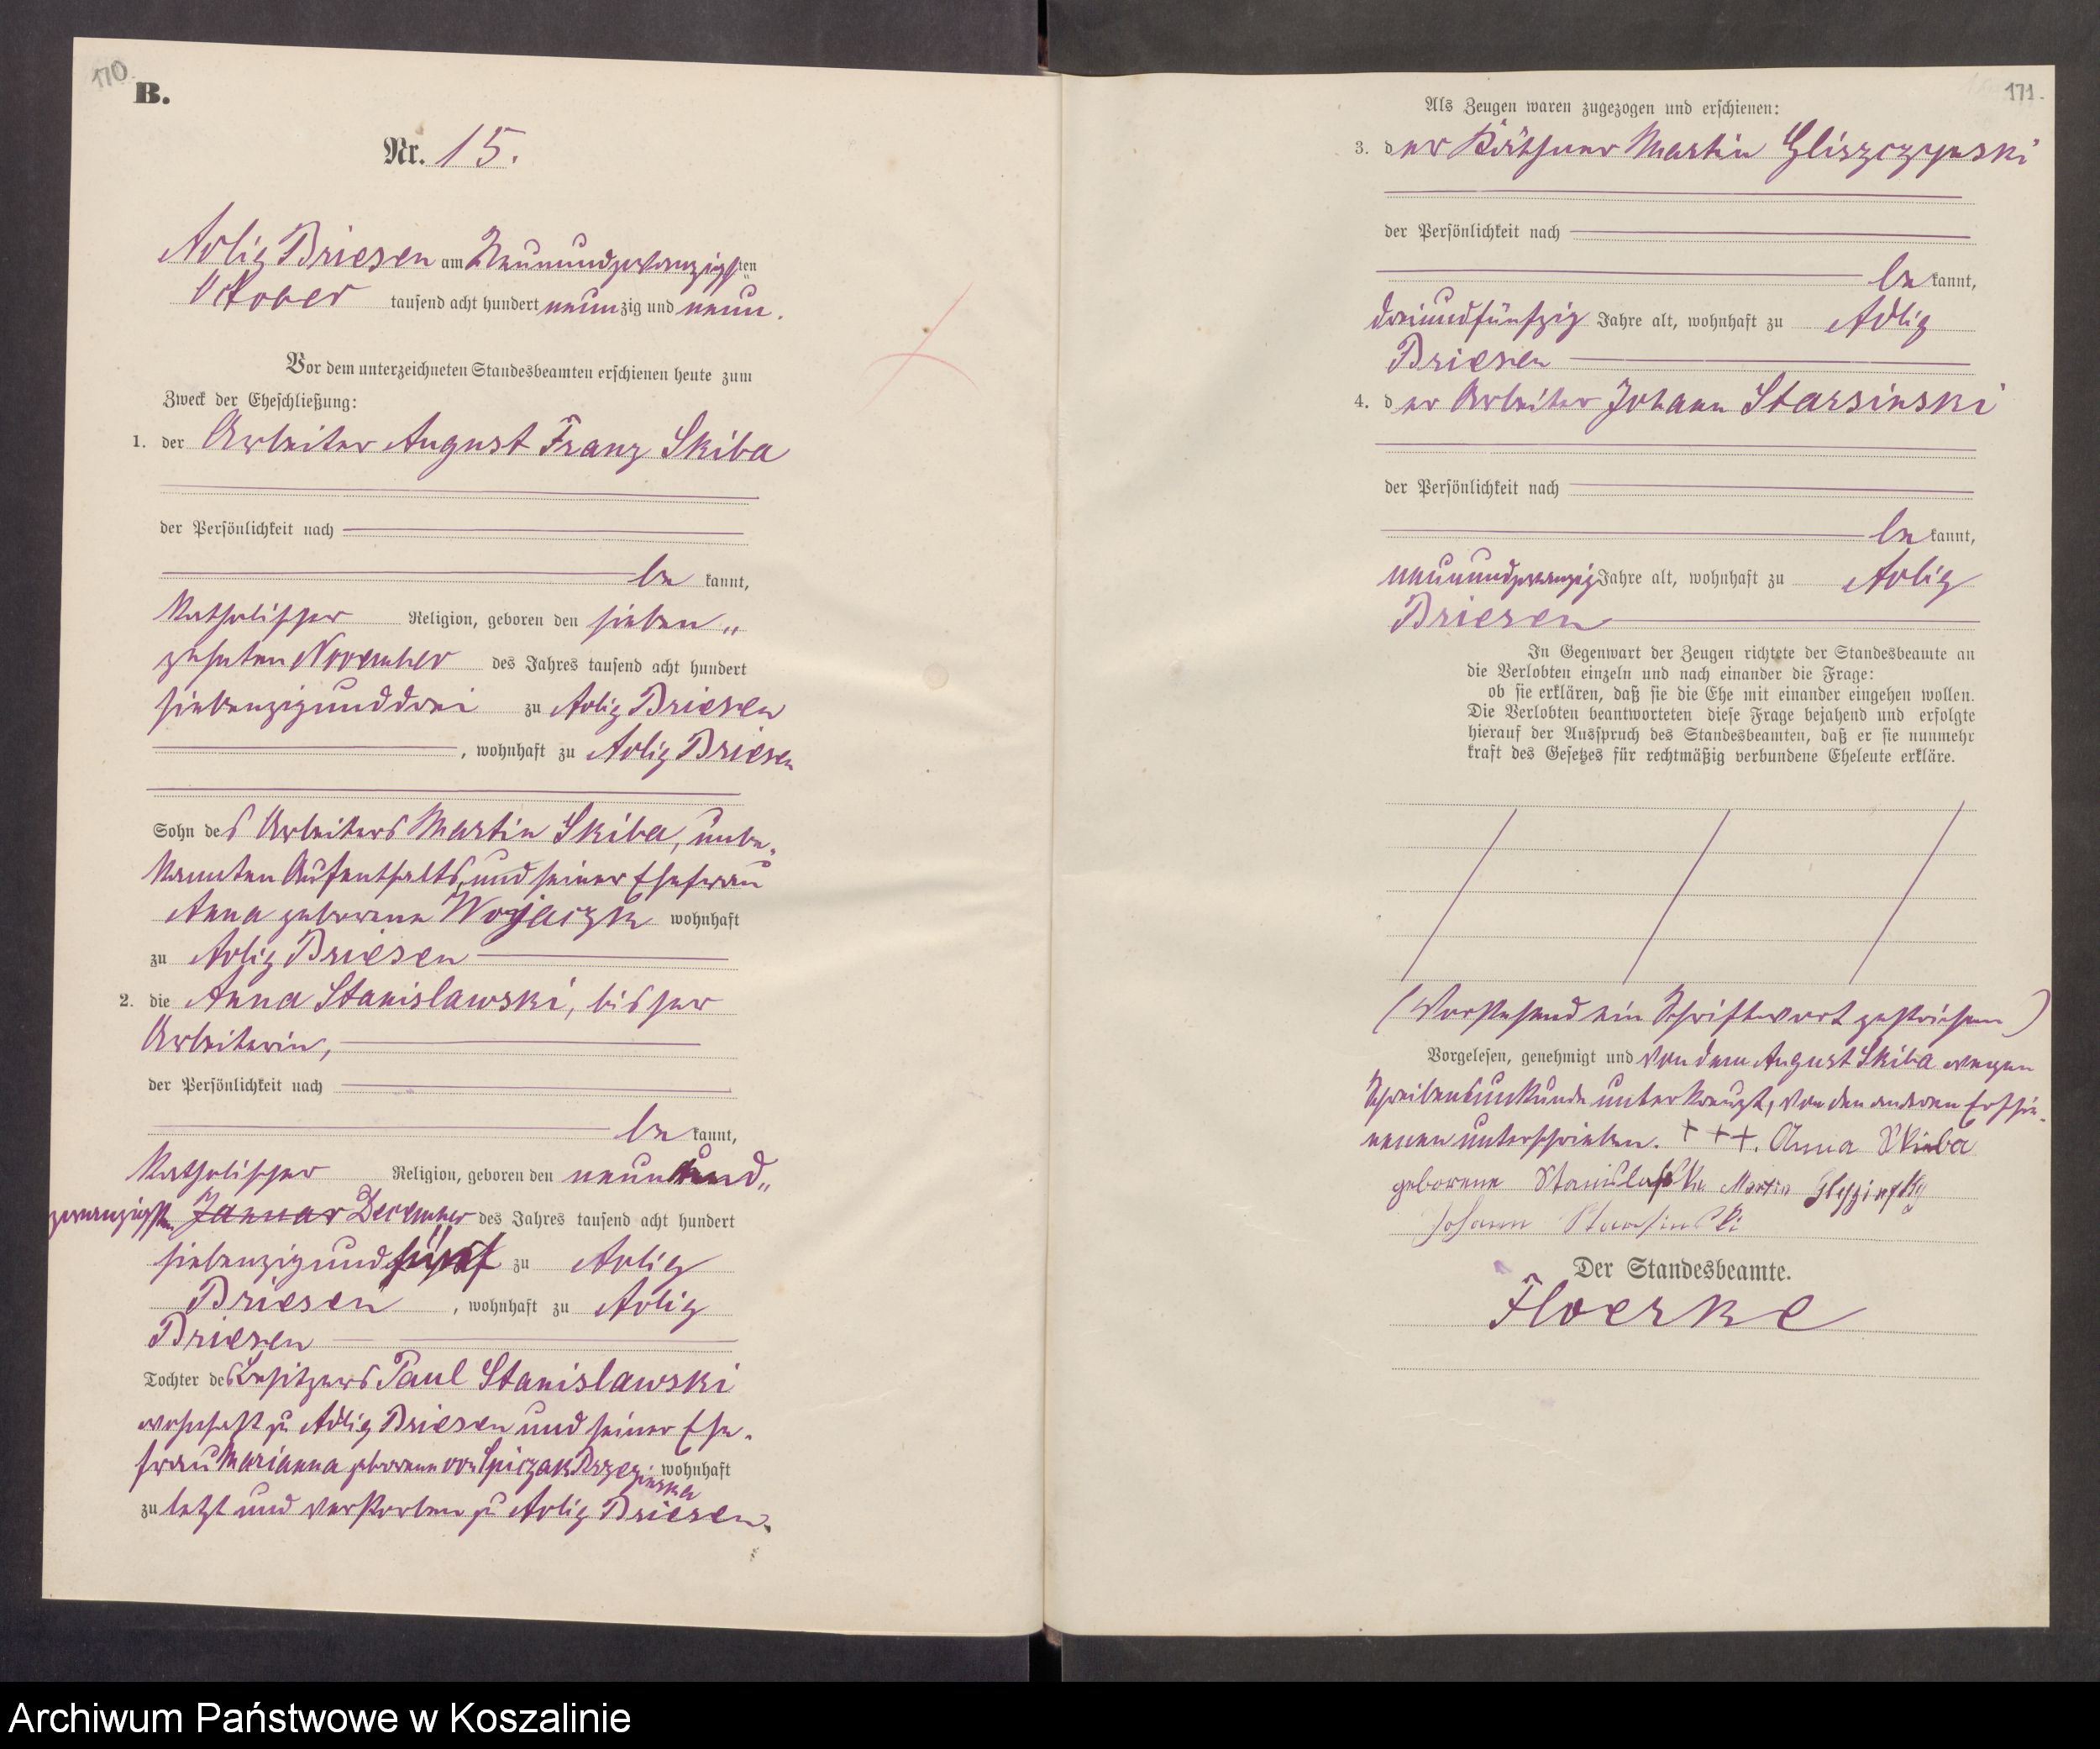 170
B.
Nr. 15.
Adlig Briesen am Neunundzwanzigsten
October tausend acht hundert neunzig und neun.
Vor dem unterzeichneten Standesbeamten erschienen heute zum
Zweck der Eheschließung:
1. der Arbeiter August Franz Skiba
der Persönlichkeit nach
be kannt,
katholischer Religion, geboren den sieben„
zehnten November des Jahres tausend acht hundert
siebenzig und drei zu Adlig Briesen
, wohnhaft zu Adlig Briesen
Sohn des Arbeiters Martin Skiba, unbe„
kannten Aufenthalts, und seiner Ehefrau
Anna geborene wohnhaft
zu Adlig Briesen
2. die Anna Stanislawski, bisher
Arbeiterin,
der Persönlichkeit nach
be kannt,
katholischer Religion, geboren den neunund„
zwanzigsten Januar December des Jahres tausend acht hundert
siebenzig und fünf zu Adlig
Briesen, wohnhaft zu Adlig
Briesen
Tochter des Besitzers Paul Stanislawski
wohnhaft zu Adlig Briesen und seiner Ehe„
frau Marianna geborene von Spiczak Brzezinska wohnhaft
zuletzt und verstorben zu Adlig Briesen.
171.
Als Zeugen waren zugezogen und erschienen:
3. der Käthner Martin Gliszczynski
der Persönlichkeit nach
be kannt,
dreiundfünfzig Jahre alt, wohnhaft zu Adlig
Briesen
4. der Arbeiter Johann Starsinski
der Persönlichkeit nach
be kannt,
neunundzwanzig Jahre alt, wohnhaft zu Adlig
Briesen
In Gegenwart der Zeugen richtete der Standesbeamte an
die Verlobten einzeln und nach einander die Frage:
ob sie erklären, daß sie die Ehe mit einander eingehen wollen.
Die Verlobten beantworteten diese Frage bejahend und erfolgte
hierauf der Ausspruch des Standesbeamten, daß er sie nunmehr
kraft des Gesetzes für rechtmäßig verbundene Eheleute erkläre.
(Vorstehend ein Schriftwort gestrichen)
Vorgelesen, genehmigt und von dem August Skiba wegen
Schreibensunkunde unterkreuzt, von den anderen Erschie„
nenen unterschrieben. + + +. Anna Skiba
geborene Martin
Johann
Der Standesbeamte.
Floerke
Archiwum Państwowe w Koszalinie